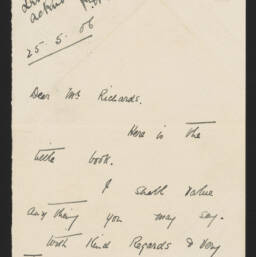 25-5-06
Dear Mrs Richards.
Here is the
little book.
I shall value
any thing you may say.
With Kind Regards & Very